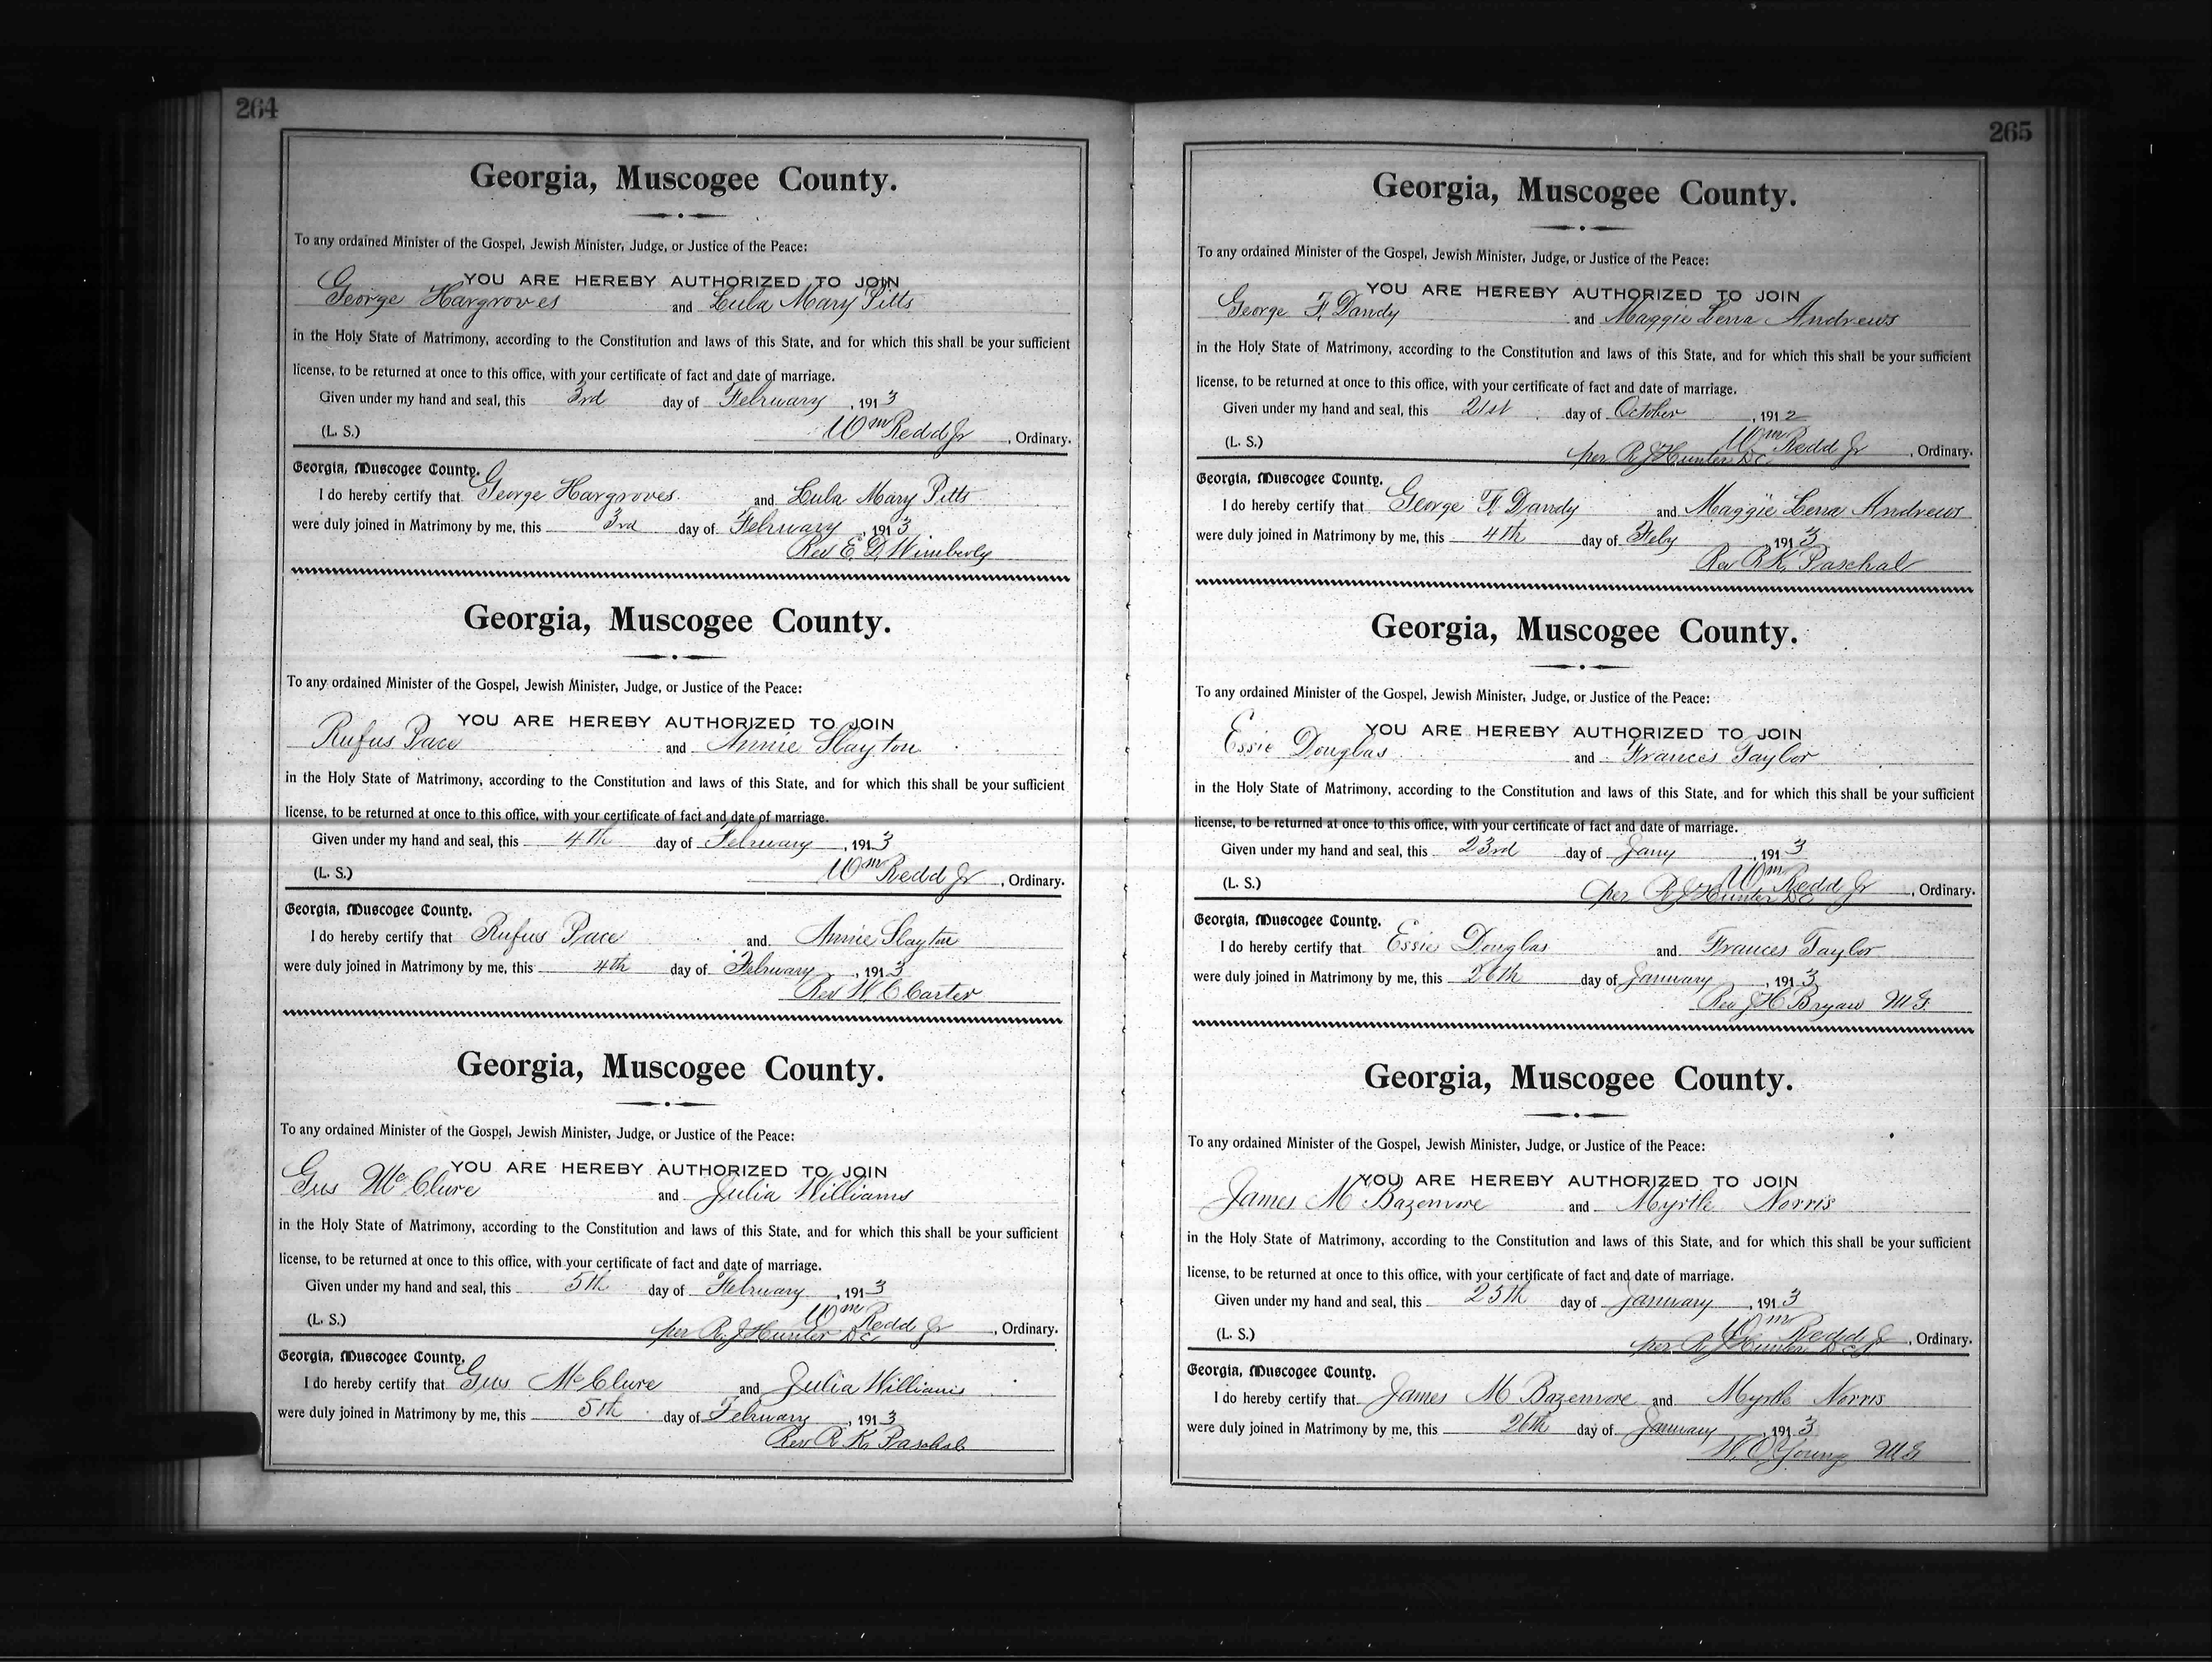 264
Georgia, Muscogee County.
To any ordained Minister of the Gospel, Jewish Minister, Judge, or Justice of the Peace:
YOU ARE HEREBY AUTHORIZED TO JOIN
George Hargroves and Lula Mary Pitts
in the Holy State of Matrimony, according to the Constitution and laws of this State, and for which this shall be your sufficient
license, to be returned at once to this office, with your certificate of fact and date of marriage.
Given under my hand and seal, this 3rd day of February, 1913
(L. S.) Wm Redd Jr, Ordinary.
Georgia, Muscogee County.
I do hereby certify that George Hargroves. and Lula Mary Pitts
were duly joined in Matrimony by me, this 3rd day of February, 1913
Rev E. D. Wimberly
Georgia, Muscogee County.
To any ordained Minister of the Gospel, Jewish Minister, Judge, or Justice of the Peace:
YOU ARE HEREBY AUTHORIZED TO JOIN
Rufus Pace and Annie Slayton
in the Holy State of Matrimony, according to the Constitution and laws of this State, and for which this shall be your sufficient
license, to be returned at once to this office, with your certificate of fact and date of marriage.
Given under my hand and seal, this 4th day of February, 1913
(L. S.) Wm Redd Jr, Ordinary.
Georgia, Muscogee County.
I do hereby certify that Rufus Pace and Annie Slayton
were duly joined in Matrimony by me, this 4th day of February, 1913
Rev W. C Carter
Georgia, Muscogee County.
To any ordained Minister of the Gospel, Jewish Minister, Judge, or Justice of the Peace:
YOU ARE HEREBY AUTHORIZED TO JOIN
Gus McClure and Julia Williams
in the Holy State of Matrimony, according to the Constitution and laws of this State, and for which this shall be your sufficient
license, to be returned at once to this office, with your certificate of fact and date of marriage.
Given under my hand and seal, this 5th day of February, 1913
(L. S.) Wm Redd Jr, Ordinary.
per R. J Hunter DC
Georgia, Muscogee County.
I do hereby certify that Gus McClure and Julia Williams
were duly joined in Matrimony by me, this 5th day of February, 1913
Rev R. K. Paschal
265
Georgia, Muscogee County.
To any ordained Minister of the Gospel, Jewish Minister, Judge, or Justice of the Peace:
YOU ARE HEREBY AUTHORIZED TO JOIN
George F. Dandy and Maggie Lena Andrews
in the Holy State of Matrimony, according to the Constitution and laws of this State, and for which this shall be your sufficient
license, to be returned at once to this office, with your certificate of fact and date of marriage.
Given under my hand and seal, this 21st day of October, 1912
(L. S.) Wm Redd Jr, Ordinary.
per R J Hunter DC
Georgia, Muscogee County.
I do hereby certify that George F. Dandy and Maggie Lena Andrews
were duly joined in Matrimony by me, this 4th day of Feby, 1913
Rev R K. Paschal
Georgia, Muscogee County.
To any ordained Minister of the Gospel, Jewish Minister, Judge, or Justice of the Peace:
YOU ARE HEREBY AUTHORIZED TO JOIN
Essie Douglas and Frances Taylor
in the Holy State of Matrimony, according to the Constitution and laws of this State, and for which this shall be your sufficient
license, to be returned at once to this office, with your certificate of fact and date of marriage.
Given under my hand and seal, this 23rd day of Jany, 1913
(L. S.) Wm Redd Jr, Ordinary.
per R J Hunter DC
Georgia, Muscogee County.
I do hereby certify that Essie Douglas and Frances Taylor
were duly joined in Matrimony by me, this 26th day of January, 1913
Rev J H Bryan M G.
Georgia, Muscogee County.
To any ordained Minister of the Gospel, Jewish Minister, Judge, or Justice of the Peace:
YOU ARE HEREBY AUTHORIZED TO JOIN
James M Bazemore and Myrtle Norris
in the Holy State of Matrimony, according to the Constitution and laws of this State, and for which this shall be your sufficient
license, to be returned at once to this office, with your certificate of fact and date of marriage.
Given under my hand and seal, this 25th day of January, 1913
(L. S.) Wm Redd Jr, Ordinary.
per R J Hunter DC
Georgia, Muscogee County.
I do hereby certify that James M Bazemore and Myrtle Norris
were duly joined in Matrimony by me, this 26th day of January, 1913
W. O. Young M G